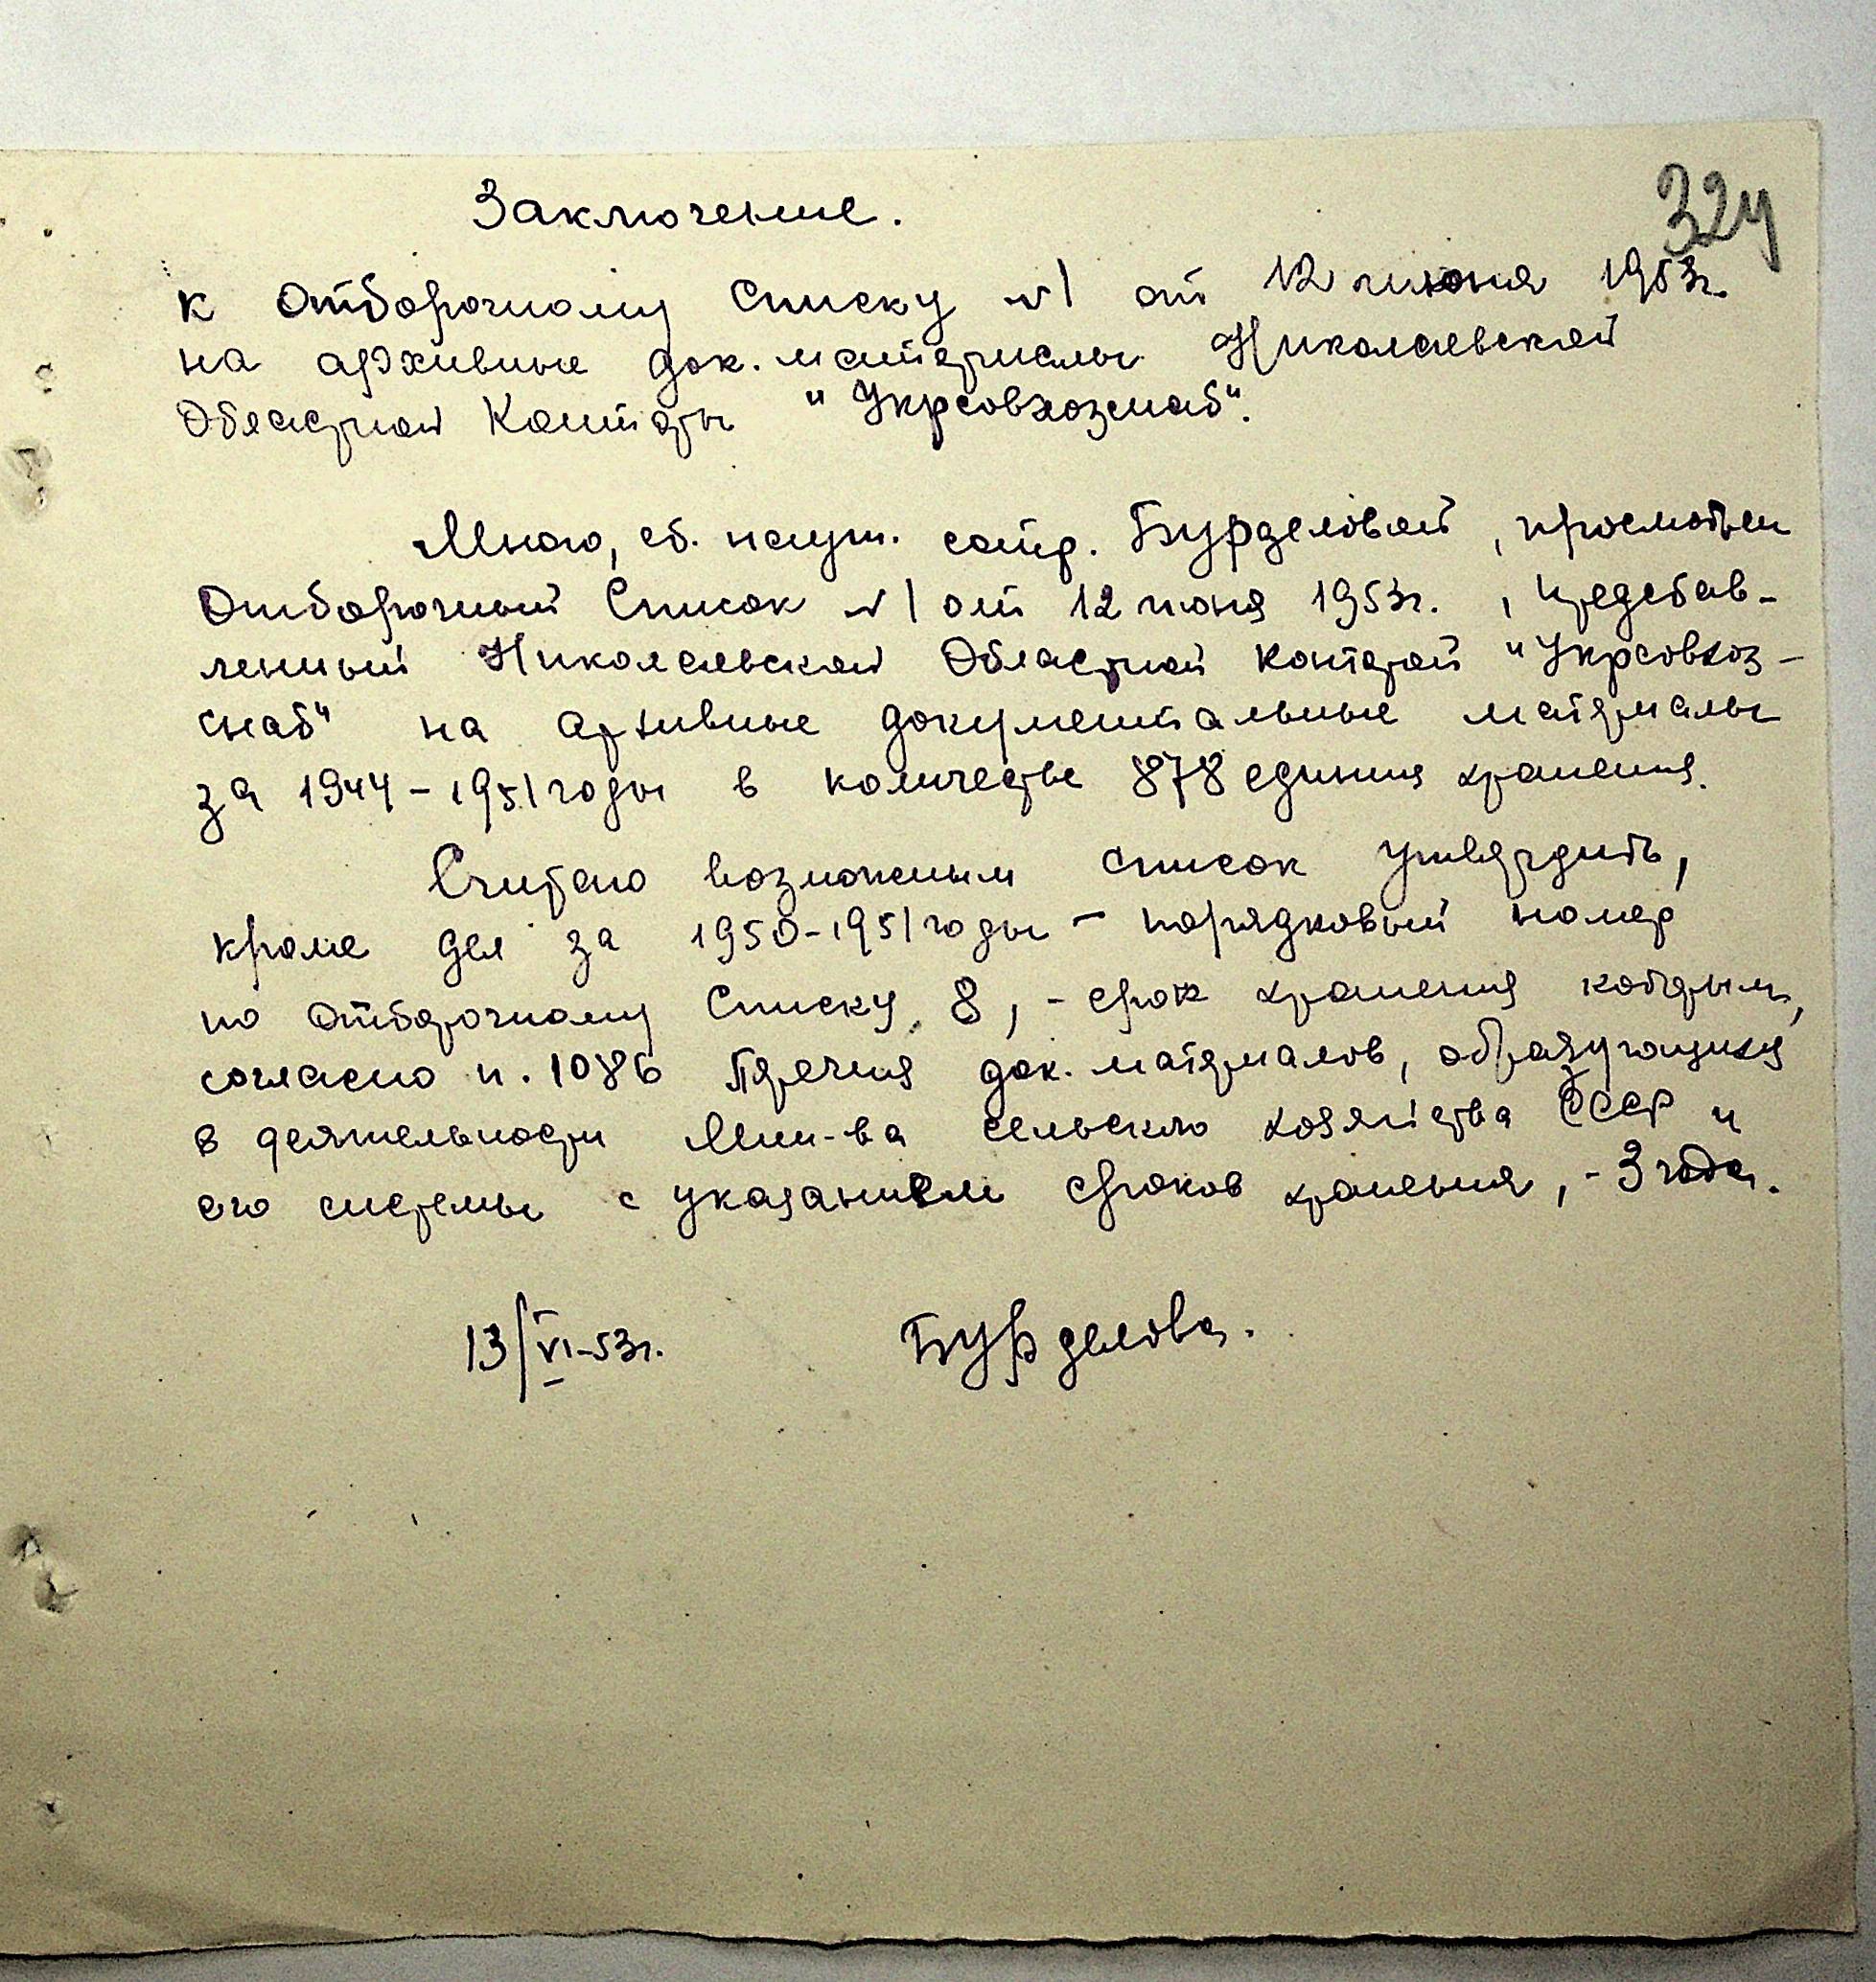 324
Заключение.
к Отборочному Списку №1 от 12 июня 1953г.
на архивные док. материалы Николаевской
Областной Конторы "Укрсовхозснаб".
Мною, ст. научн. сотр. Бурделовой, просмотрен
Отборочный Список №1 от 12 июня 1953г., представ-
ленный Николаевской Областной Конторой "Укрсовхоз-
снаб" на архивные документальные материалы
за 1944-1951 годы в количестве 878 единиц хранения.
Считаю возможным список утвердить,
кроме дел за 1950-1951 годы - порядковый номер
по Отборочному Списку 8, - срок хранения которым,
согласно п. 1086 Перечня док. материалов, образующихся
в деятельности Мин-ва сельского хозяйства СССР и
его системы с указанием сроков хранения, - 3 года.
13/VI-53г. Бурделова.